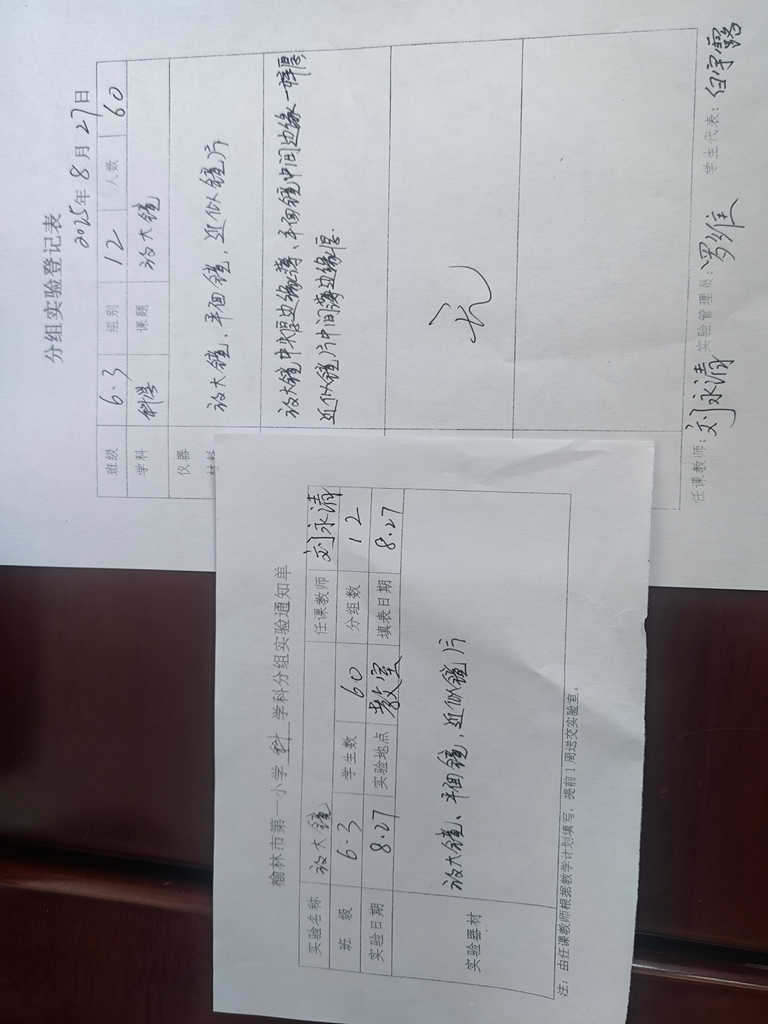 分组实验登记表
2025年8月27日
班级 6.3 组别 12 人数 60
学科 科学 课题 放大镜
仪器 放大镜、平面镜、近似镜片
放大镜中央厚边缘薄、平面镜中间边缘一样厚
近似镜片中间薄边缘厚
无
任课教师：刘永清 实验管理员：罗维 学生代表：白宇露
榆林市第一小学 科 学科分组实验通知单
实验名称 放大镜 任课教师 刘永清
班 级 6.3 学生数 60 分组数 12
实验日期 8.27 实验地点 教室 填表日期 8.27
实验器材 放大镜、平面镜、近似镜片
注：由任课教师根据教学计划填写，提前1周送交实验室。